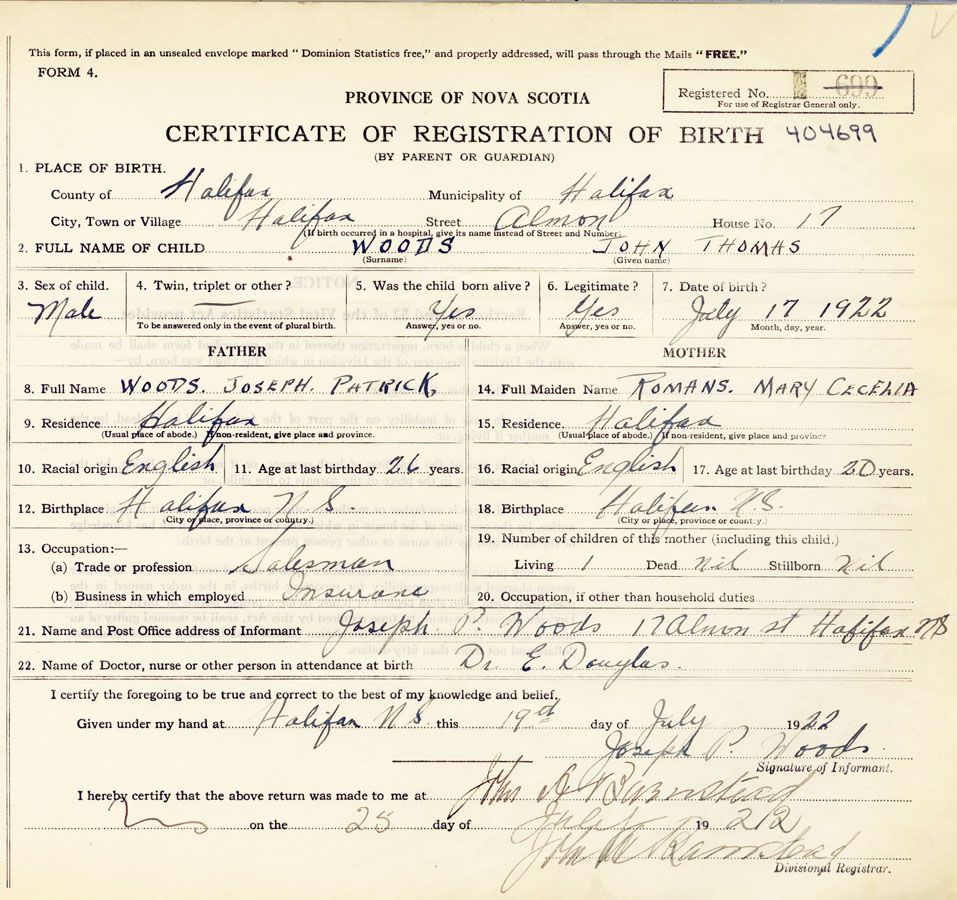 This form, if placed in an unsealed envelope marked "Dominion Statistics free," and properly addressed, will pass through the Mails "FREE."
FORM 4.
Registered No. 699
For use of Registrar General only.
PROVINCE OF NOVA SCOTIA
CERTIFICATE OF REGISTRATION OF BIRTH 404699
(BY PARENT OR GUARDIAN)
1. PLACE OF BIRTH.
County of Halifax Municipality of Halifax
City, Town or Village Halifax Street Almon House No. 17
(If birth occurred in a hospital, give its name instead of Street and Number)
2. FULL NAME OF CHILD WOODS JOHN THOMAS
(Surname) (Given name)
3. Sex of child. 4. Twin, triplet or other? 5. Was the child born alive? 6. Legitimate? 7. Date of birth?
Male — Yes Yes July 17 1922
To be answered only in the event of plural birth. Answer, yes or no. Answer, yes or no. Month, day, year.
FATHER MOTHER
8. Full Name WOODS. JOSEPH. PATRICK. 14. Full Maiden Name ROMANS. MARY CECELIA
9. Residence Halifax 15. Residence. Halifax
(Usual place of abode.) If non-resident, give place and province. (Usual place of abode.) If non-resident, give place and province
10. Racial origin English 11. Age at last birthday 26 years. 16. Racial origin English 17. Age at last birthday 20 years.
12. Birthplace Halifax N S. 18. Birthplace Halifax N.S.
(City or place, province or country.) (City or place, province or country.)
13. Occupation:— 19. Number of children of this mother (including this child.)
(a) Trade or profession Salesman Living 1 Dead Nil Stillborn Nil
(b) Business in which employed Insurance 20. Occupation, if other than household duties
21. Name and Post Office address of Informant Joseph P. Woods 17 Almon st Halifax NS
22. Name of Doctor, nurse or other person in attendance at birth Dr. E. Douglas.
I certify the foregoing to be true and correct to the best of my knowledge and belief.
Given under my hand at Halifax N S. this 19th day of July 1922
Joseph P. Woods.
Signature of Informant.
I hereby certify that the above return was made to me at John A Barnstead
on the 25 day of July 19 22
John A Barnstead
Divisional Registrar.